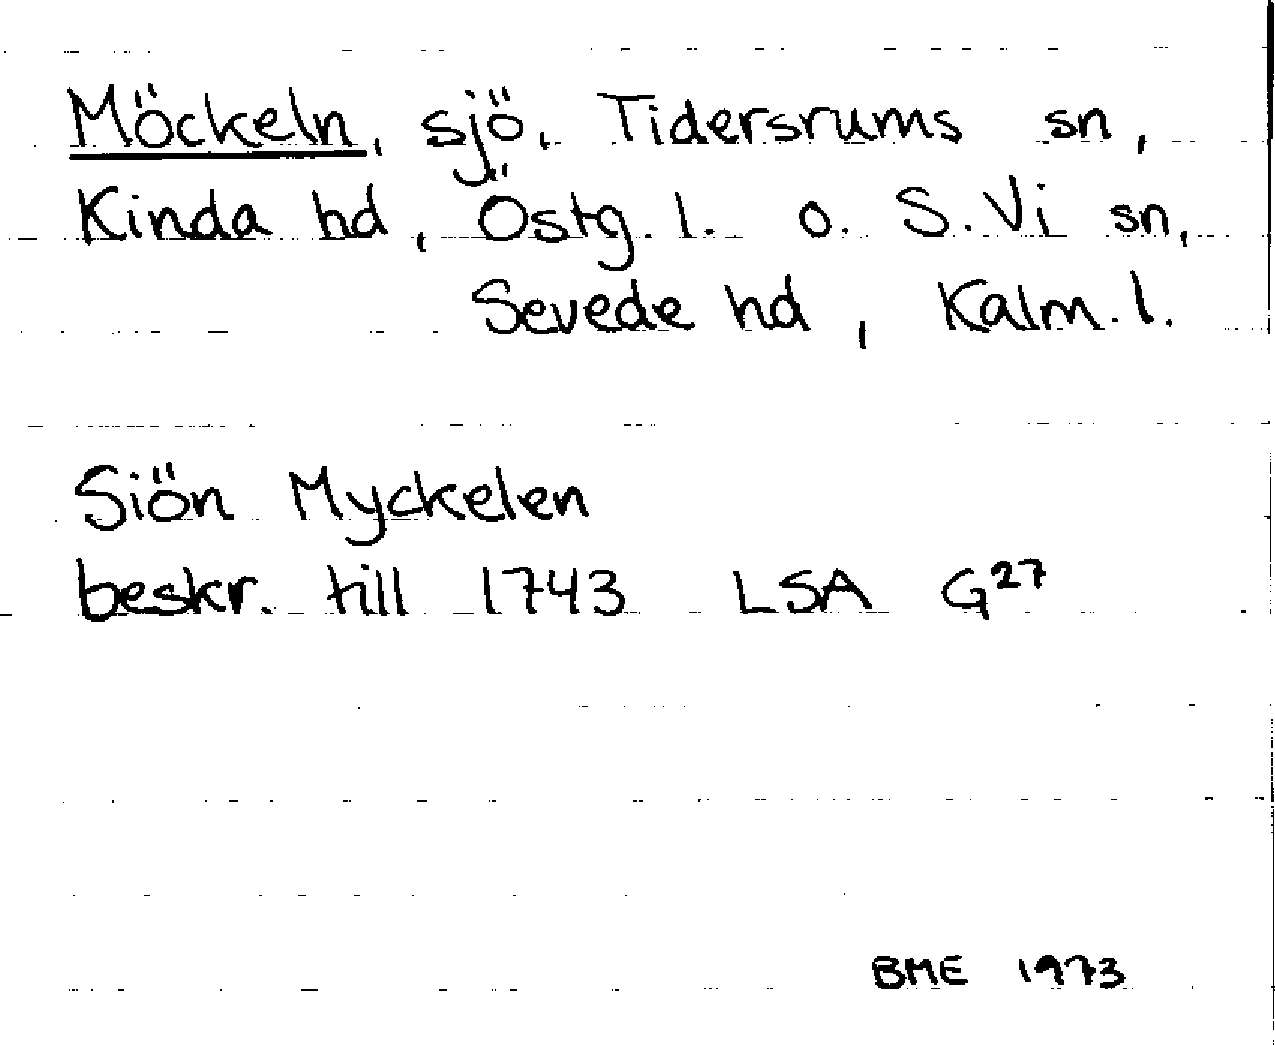 Möckeln, sjö, Tidersrums sn,
Kinda hd, Östg. l. o. S. Vi sn,
Sevede hd, Kalm. l.
Siön Myckelen
beskr. till 1743 LSA G27
BME 1973